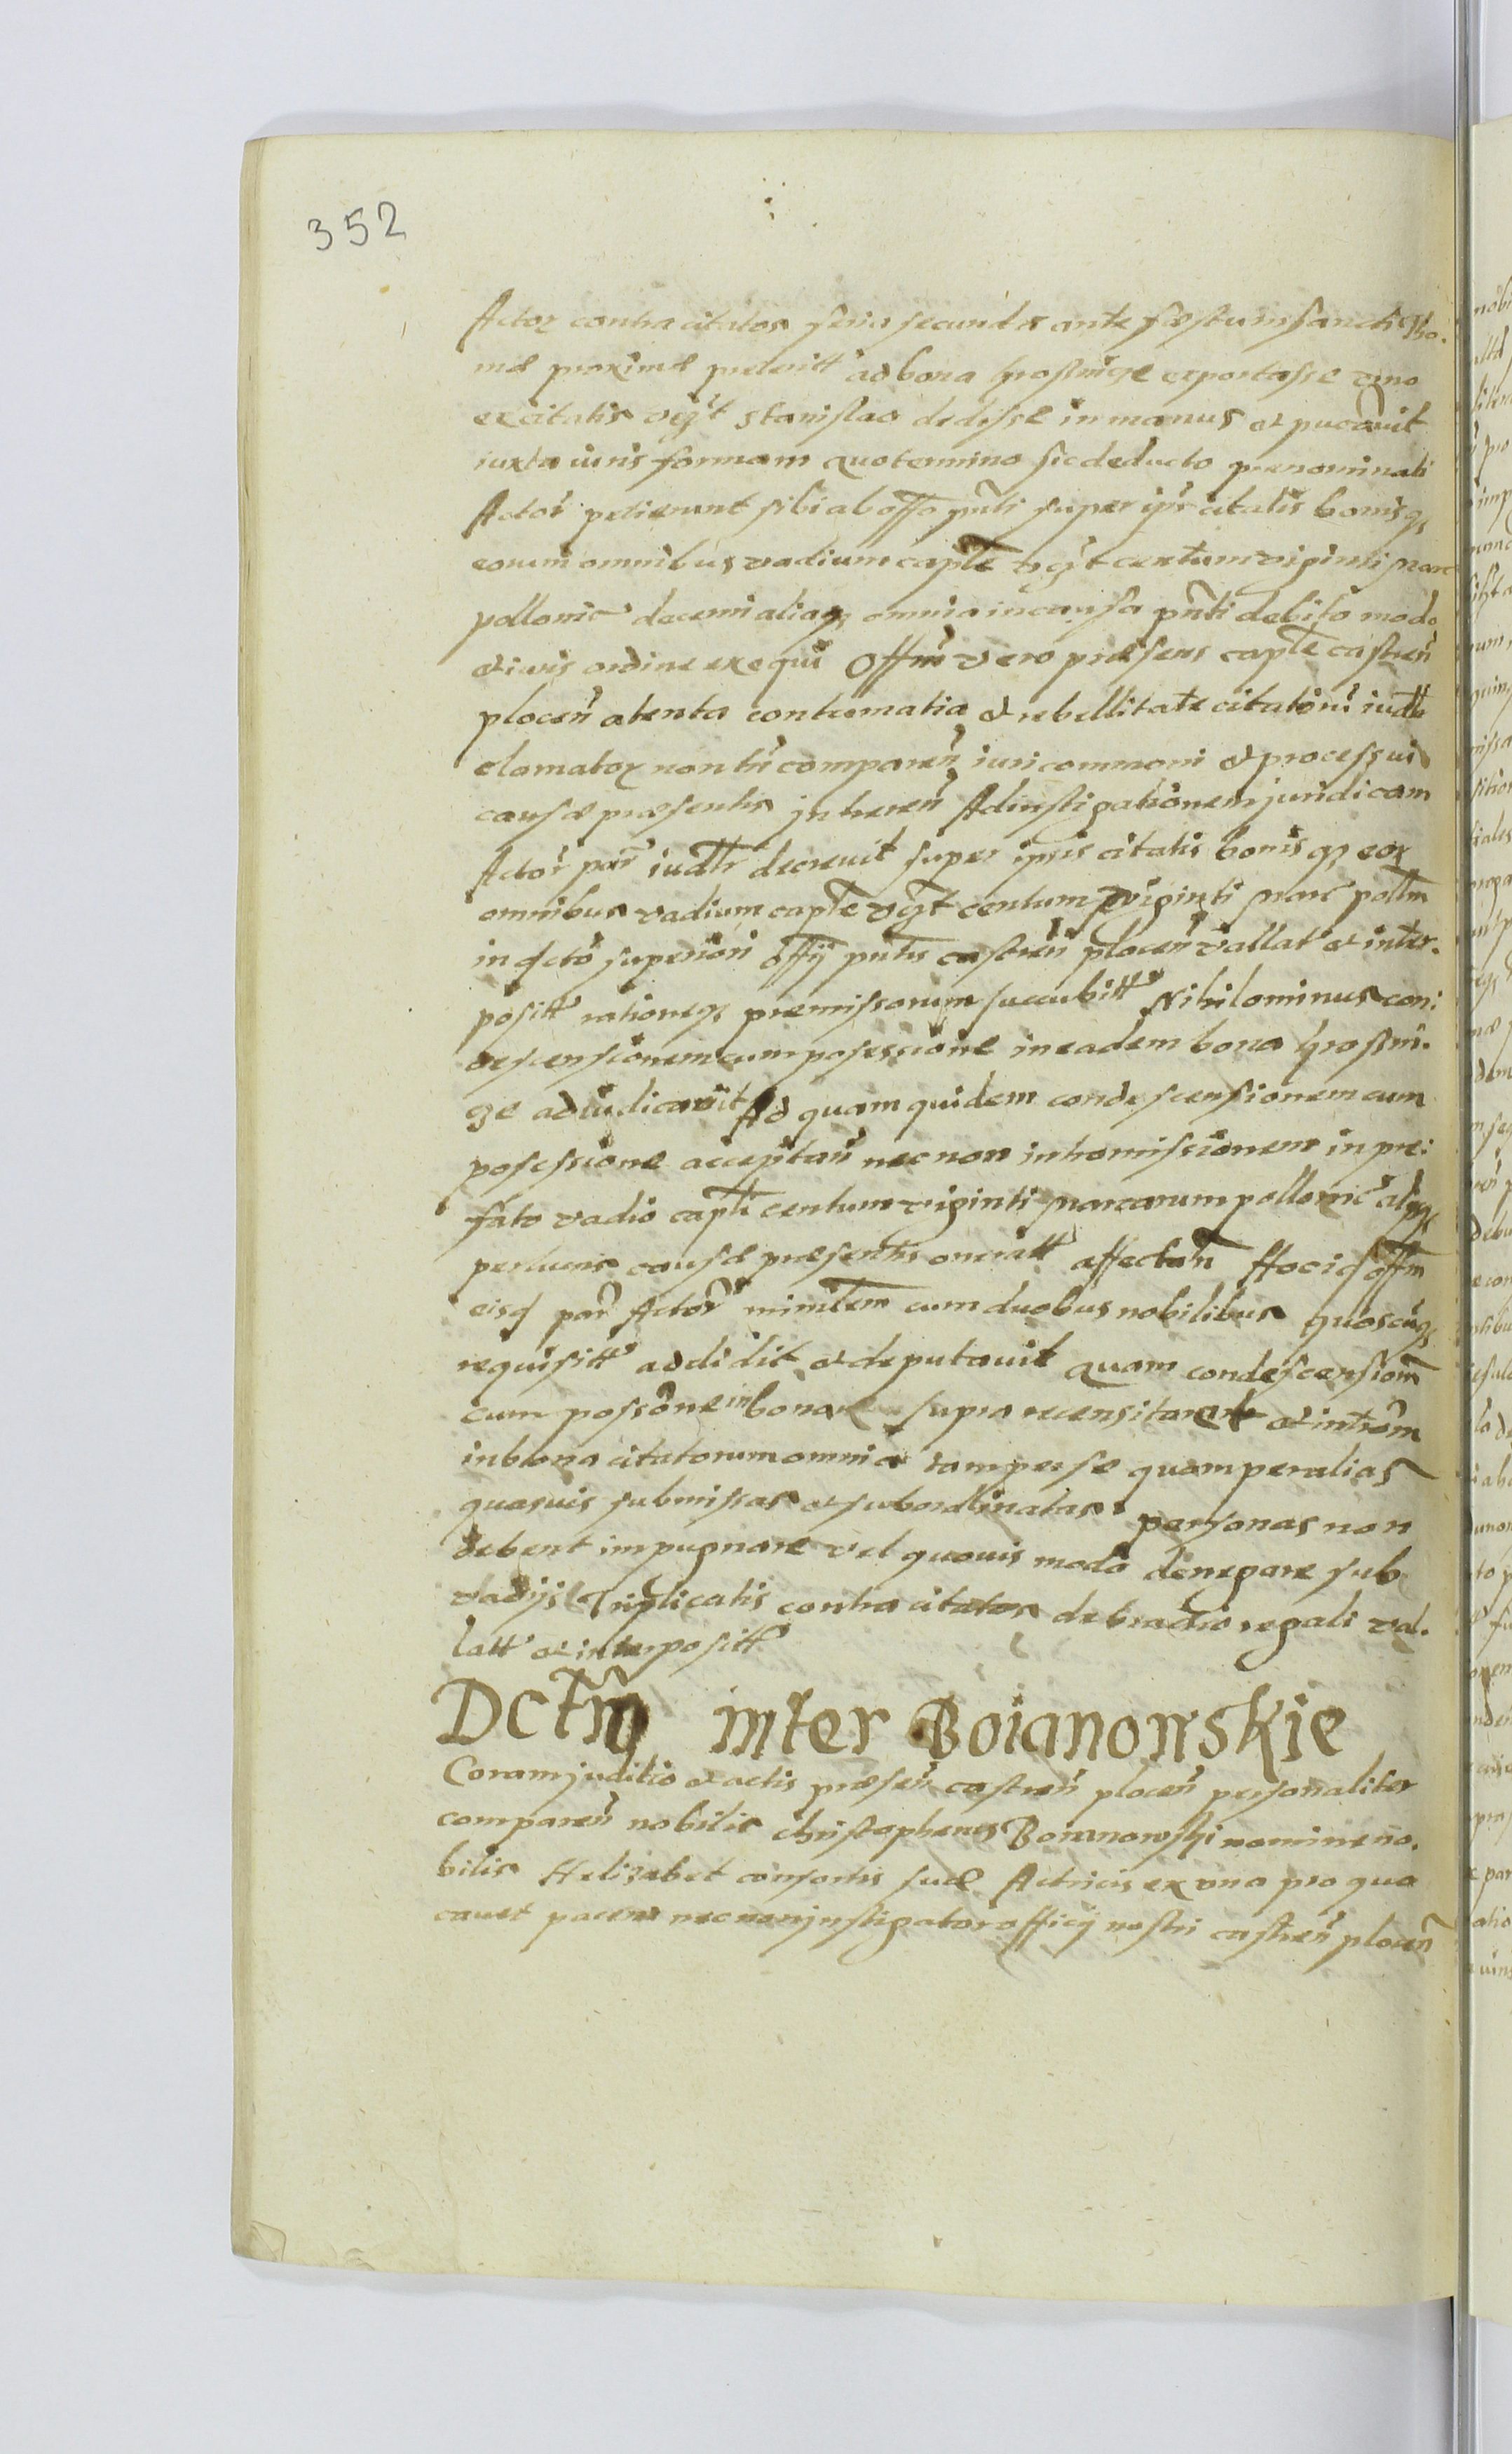 352
Actor contra citatos feria secunda ante festum sancti Tho.
mæ proximæ preteritt ad bona exportasse uno
ex citatis vczt Stanislao dedisse in manus et pucavit
iuxta iuris formam quo termino sic deducto prenominati
Actor petierunt sibi ab offo pnti super ipis citatis bonisq
eorum omnibus vadium caple vczt centum viginti marc
pollonic decerni aliaq omnia in causa pnti debito modo
et iuris ordine exequi Offm vero præsens caple castren
plocen atenta contumatia et rebellitate citatorum iudtr
clamator non tn comparen iuri communi et processui
causæ præsentis inheren Ad instigationem juridicam
Actor par iudtr decrevit super ipsis citatis bonis q eor
omnibus vadium caple vczt centum viginti marc pollm
in dcto superiori offy pntis castren plocen vallat et inter.
positt rationeq premissorum succubitt Nihilominus con:
descensionem cum posessione in eadem bona
adiudicavit Ad quam quidem condescensionem cum
posessione acceptan nec non intromissionem in pre:
fato vadio capli centum viginti marcarum pollonic aliasq
perlucra causæ præsentis oneratt affectan Hoc id offm
eisd par Actor minrlem cum duobus nobilibus quoscuq
requisitt addidit et deputavit Quam condescensionm
cum possone in bona supra recensita et introm
in bona citatorum omnia tam per se quam per alias
quasuis submissas et subordinatas personas non
debent impugnare vel quouis modo denegare sub
vadijs Triplicatis contra citatos de bractio regali val.
latt et interpositt
Dctm inter Boianowskie
Coram juditio et actis præsen castren plocen personaliter
comparen nobilis christopherus Boianowski nomine no.
bilis Helizabet consortis suæ Actricis ex una pro qua
cavet pacem nec non instigator officij nostri castren plocen